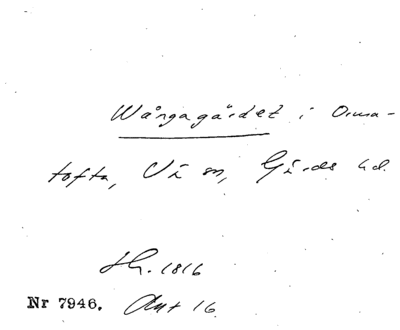 Wångagärdet i Orma-
tofta, Vä sn, Gärds hd.
Nr 7946. Akt 16